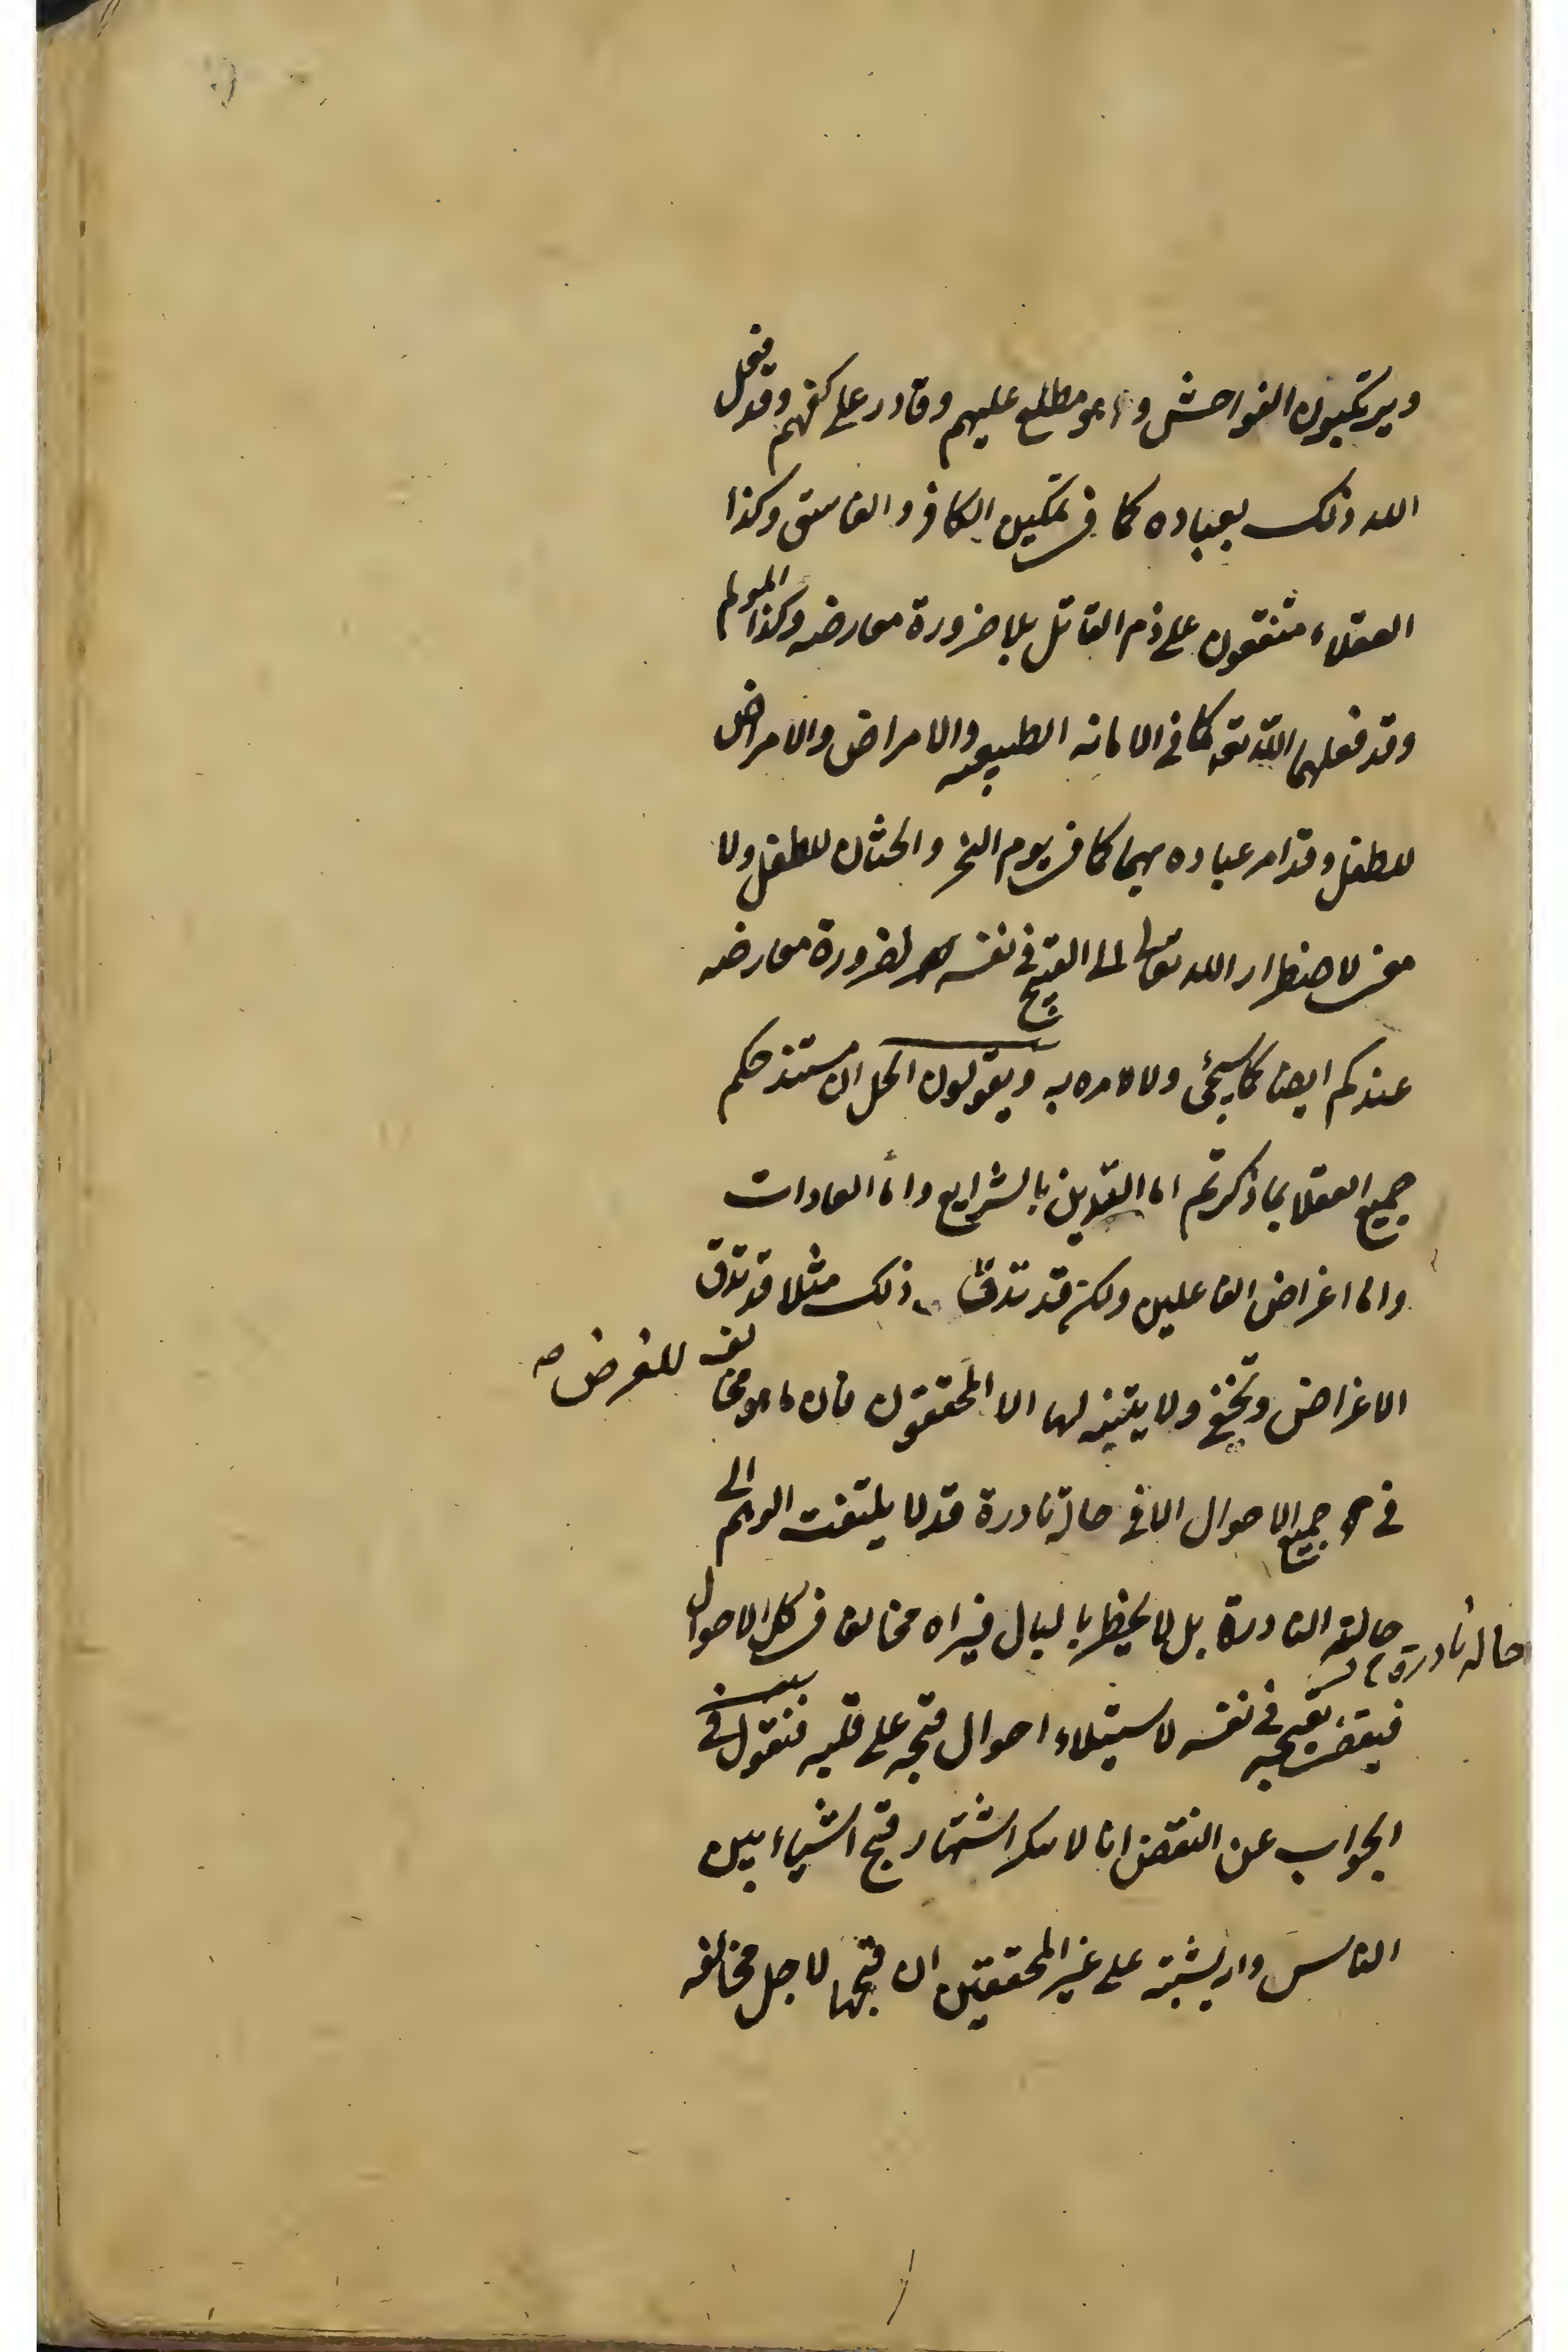 ويرتكبون الفواحش وهو مطلع عليهم وقادر على كفهم وقد فعل
الله ذلك بعباده كما في تمكين الكافر والفاسق وكذا
العقلاء متفقون على ذم القاتل بلا ضرورة معارضه وكذا المولم
وقد فعلهما الله تعه كما في الاماته الطبيعيه والامراض والامراض
للطفل وقد امر عباده بهما كما في يوم النحر والختان للطفل ولا
معنى لاضطرار الله تعالى الى القبيح في نفسه لضرورة معارضه
عندكم ايضا كما سيجئ ولا لامره به ويقولون الحل ان مستند حكم
جميع العقلا بما ذكرتم اما التدين بالشرايع واما العادات
واما اغراض الفاعلين ولكن قد تدق ذلك مثلا قد تدق
الاغراض وتخفى ولا يتنبه لها الا المحققون فان ما هو مخالف للغرض صه
في جميع الاحوال الا في حالة نادرة قد لا يلتفت الوهم الى
حالته النادرة بل لا يخطر بالبال فيراه مخالف في كل الاحوال
حالة نادرة
فيقضى بقبحه في نفسه لاستيلاء احوال قبحه على قلبه فنقول في
الجواب عن النقض انا لا ننكر اشتهار قبح اشياء بين
الناس وان يشتبه على غير المحققين ان قبحها لاجل مخالفه